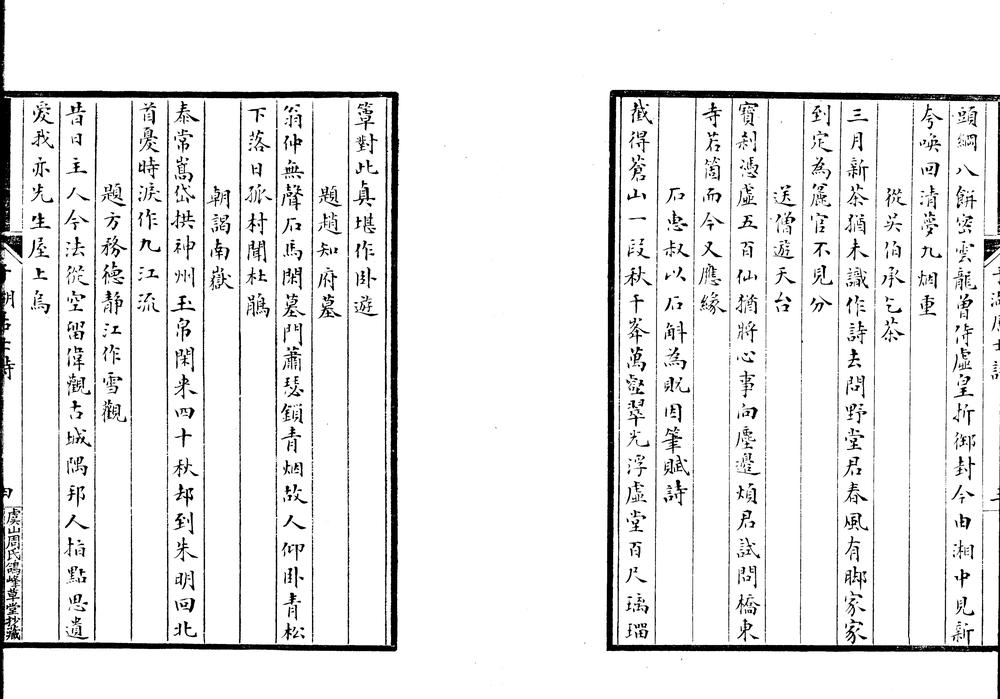 頭綱八餅密雲龍曽侍虛皇折御封今由湘中見新
今喚回清夢九烟重
從吳伯承乞茶
三月新茶猶未識作詩去問野堂君春風有脚家家
到定為麄官不見分
送僧遊天台
寶刹憑虛五百仙猶將心事向塵邊煩君試問橋東
寺若箇而今又應緣
石惠叔以石斛為貺因筆賦詩
截得蒼山一段秋千峯萬壑翠光浮虛堂百尺璃瑠
簟對此真堪作卧遊
題趙知府墓
翁仲無聲石馬閑墓門蕭瑟鎖青烟故人仰卧青松
下落日孤村聞杜鵑
朝謁南嶽
泰常嵩岱拱神州玉帛閑来四十秋却到朱明回北
首憂時淚作九江流
題方務德靜江作雪觀
昔日主人今法從空留偉觀古城隅邦人指點思遺
愛我亦先生屋上烏
四
虞山周氏鴿峰草堂抄藏